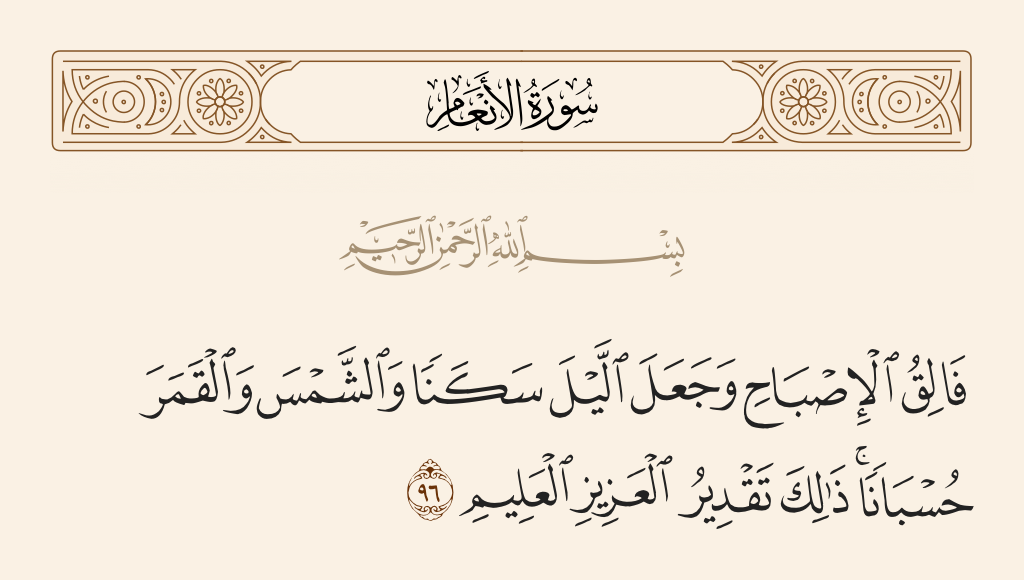 سُورَةُ الأَنْعَامِ
بِسْمِ ٱللَّهِ ٱلرَّحْمَٰنِ ٱلرَّحِيمِ
فَالِقُ ٱلْإِصْبَاحِ وَجَعَلَ ٱلَّيْلَ سَكَنَا وَٱلشَّمْسَ وَٱلْقَمَرَ
حُسْبَانَاۚ ذَٰلِكَ تَقْدِيرُ ٱلْعَزِيزِ ٱلْعَلِيمِ ٩٦